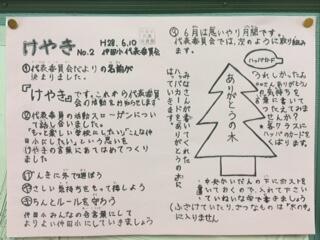 けやき
H28.6.10
No.2 仲田小代表委員会
①代表委員会だよりの名前が
決まりました。
『けやき』です。これから代表委員
会の活動をお知らせします
②代表委員の活動スローガンについ
て話し合いました。
"もっと楽しい学校にしたい""こんな仲
田小にしたい。"という思いを
けやきの言葉にあてはめてつくり
ました
け んきに外で遊ぼう
や さしい気持ちをもって接しよう
き ちんとルールを守ろう
仲田小みんなの合言葉にして
よりよい仲田小にしていきましょう
③6月は思いやり月間です。
代表委員会では、次のように取り組み
ます。
ハッパのカード
ありがとうの木
うれしかったよ
ありがとう
気持ちを
言葉に書いて
つたえてみま
せんか?
各クラスに
ハッパのカードを
くばります。
中央かいだんの下にポスト
を置いておくので、入れて下さい
ていねいな字で書きましょう
(ふざけていたり、ざつなものは"木の中"
に入りません